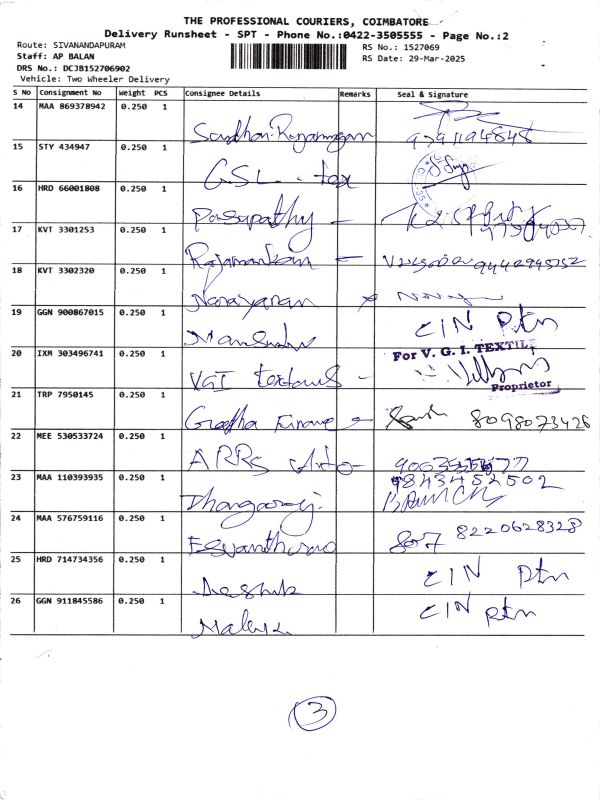 THE PROFESSIONAL COURIERS, COIMBATORE
Delivery Runsheet - SPT - Phone No.:0422-3505555 - Page No.:2
Route: SIVANANDAPURAM
RS No.: 1527069
Staff: AP BALAN
RS Date: 29-Mar-2025
DRS No.: DC3B152706902
Vehicle: Two Wheeler Delivery
S No Consignment No Weight PCS Consignee Details Remarks Seal & Signature
14 MAA 869378942 0.250 1
9791194848
15 STY 434947 0.250 1 GSL. tex
16 HRD 66001808 0.250 1 Pasupathy -
17 KVT 3301253 0.250 1 Rajamankam - 9442945252
18 KVT 3302320 0.250 1 Narayanan
19 GGN 900867015 0.250 1 C/N Rtn
20 IXM 303496741 0.250 1 VGI -
For V. G. I. TEXTIL
Proprietor
21 TRP 7950145 0.250 1 Finance - 8098073426
22 MEE 530533724 0.250 1 ARRs -
23 MAA 110393935 0.250 1 Thangaraj. 9843452502
24 MAA 576759116 0.250 1 8220628328
25 HRD 714734356 0.250 1 C/N Rtn
26 GGN 911845586 0.250 1 C/N Rtn
3